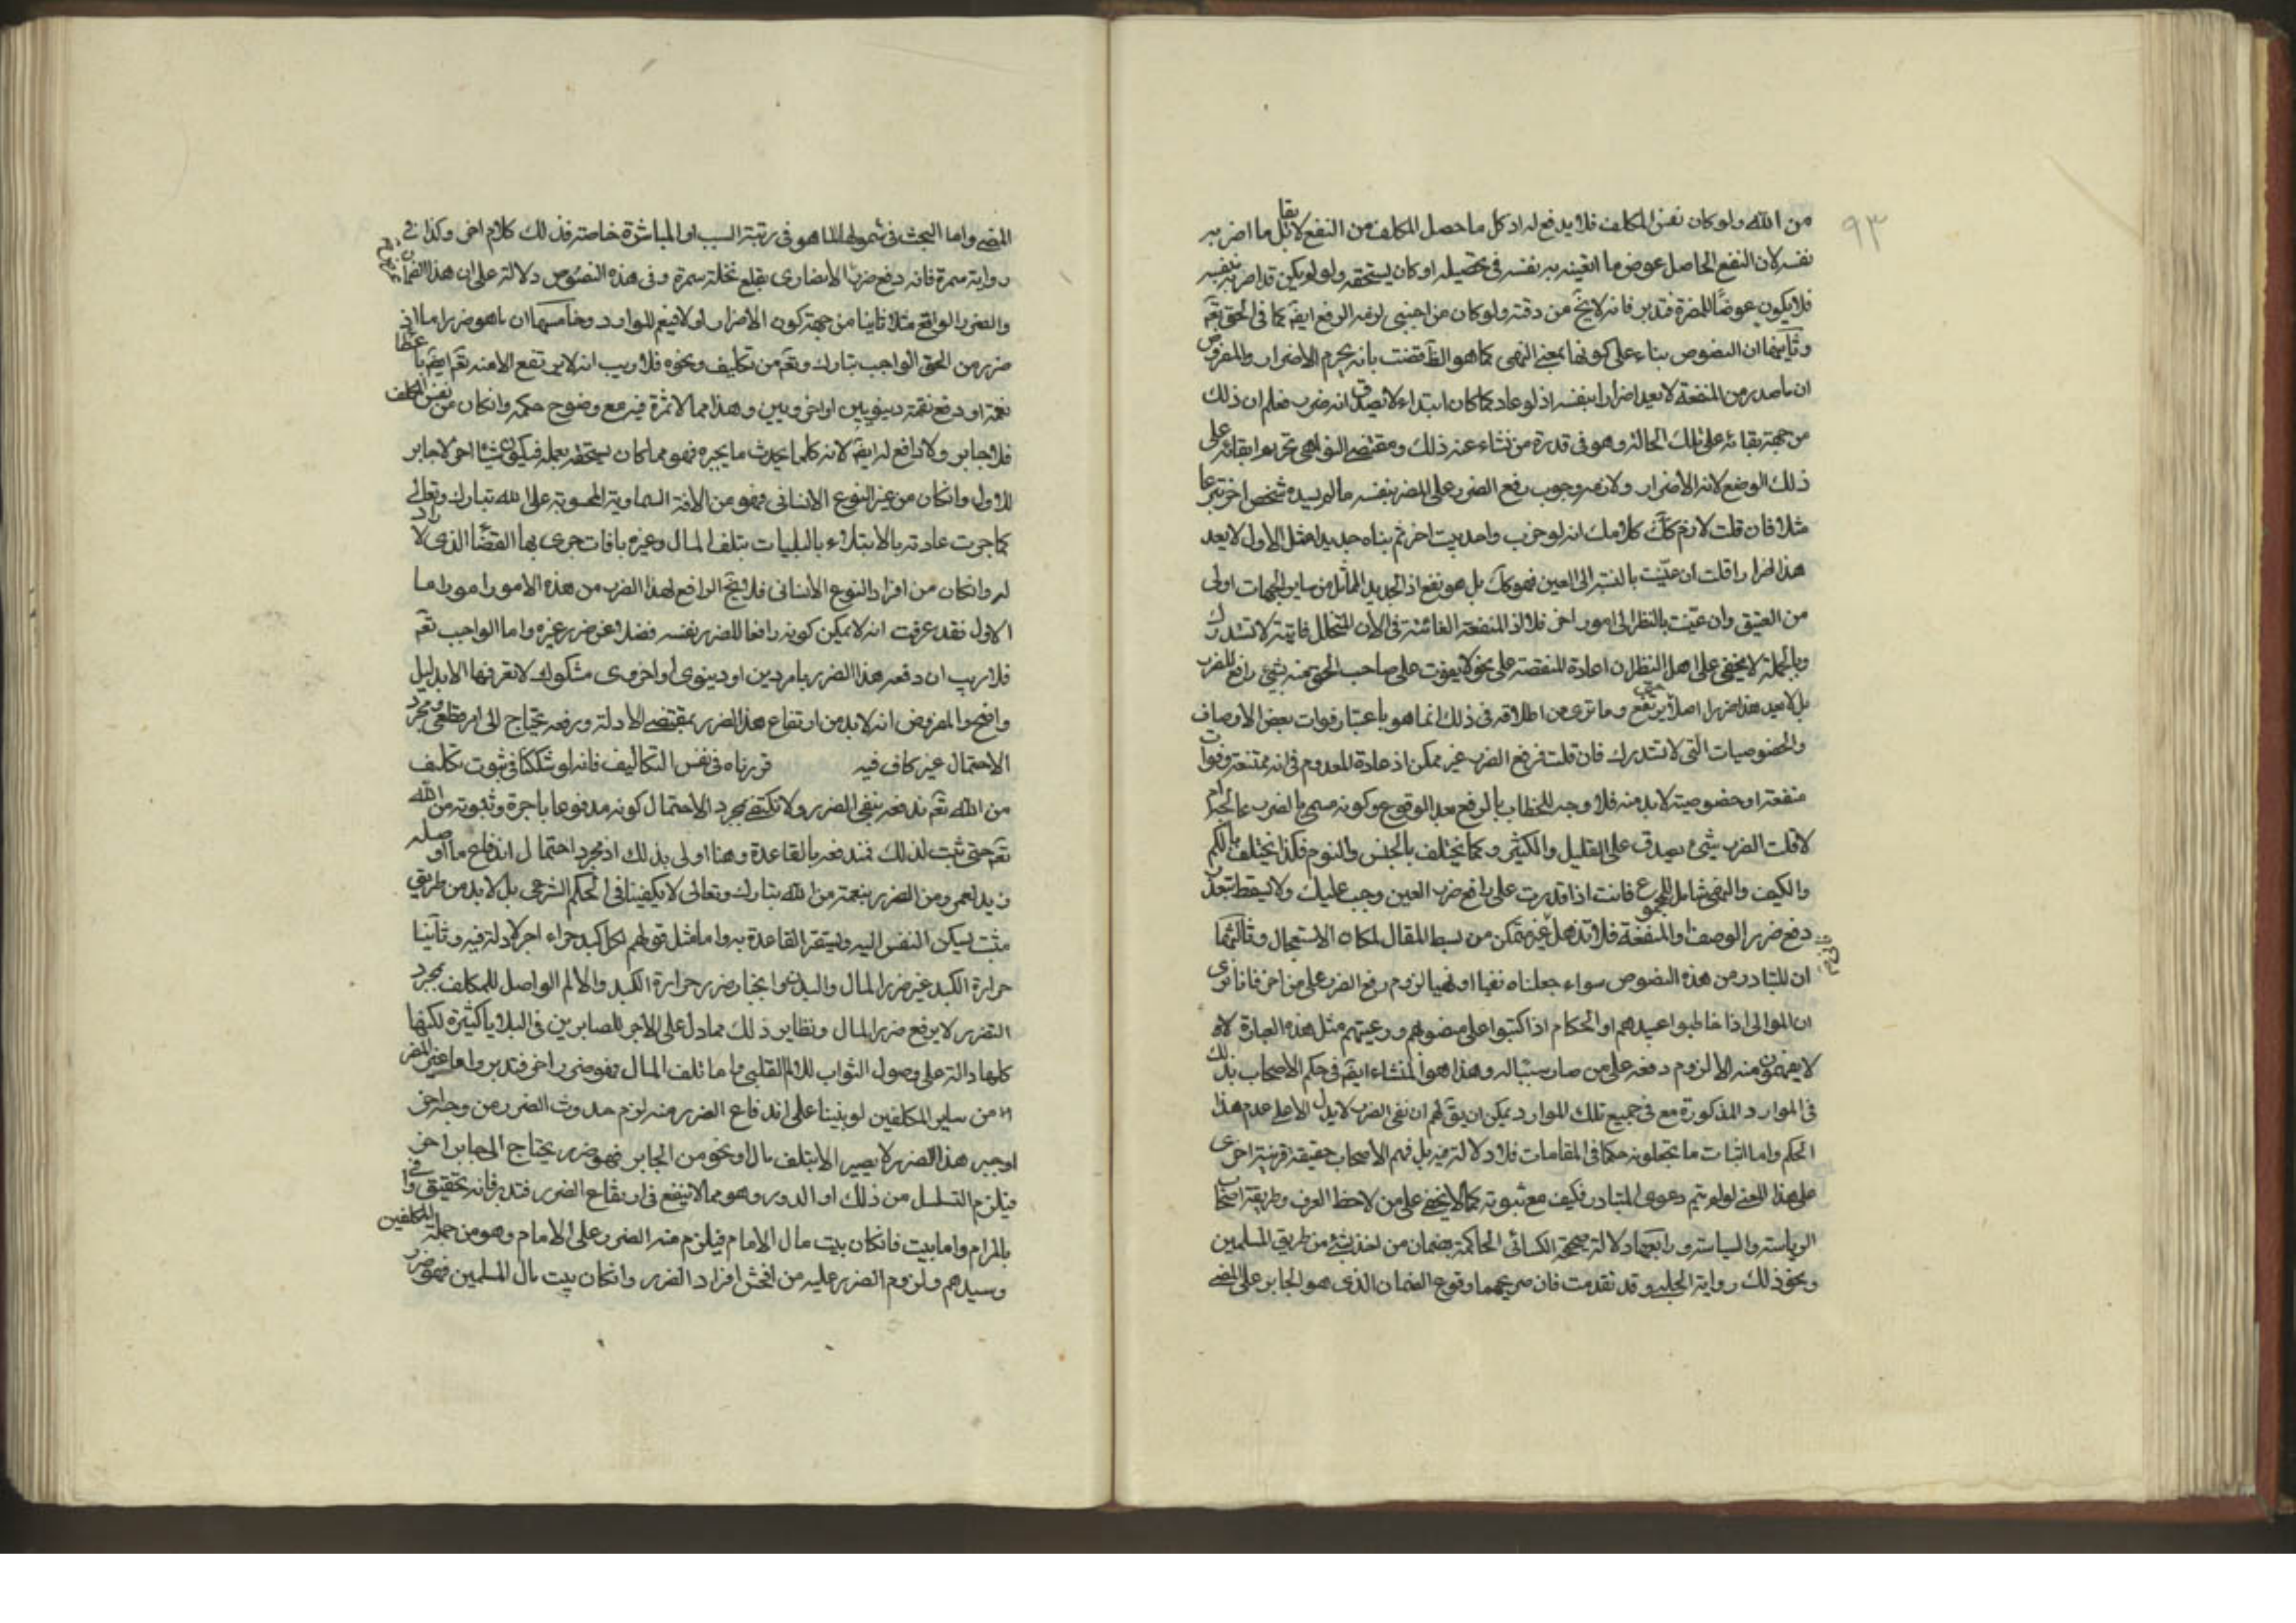 ٩٣
من الله ولو كان نفس المكلف فلا يدفع له اذ كل ما حصل المكلف من النفع لا يقابل ما اضر به
نفسه لان النفع الحاصل عوض ما اتعبه به نفسه في تحصيله او كان يستحقه ولو لم يكن قد اضر به بنفسه
فلا يكون عوضا للمضرة فتدبر فانه لا يخ من دقة ولو كان من اجنبي لزمه الرفع ايضا كما في الحق تعم
وثانيها ان النصوص بناء على كونها بمعنى النهي كما هو الظ قضت بانه يحرم الاضرار والمفروض
ان ما صدر من المنفعة لا يعد اضرارا بنفسه اذ لو عاد كما كان ابتداء لا يصدق انه ضرر فعلم ان ذلك
من جهة بقائه على تلك الحالة وهو في قدرة من نشاء عنه ذلك ومقتضى النواهي تحريم ابقائه على
ذلك الوضع لانه الاضرار ولازمه وجوب رفع الضرر على المضر بنفسه ما لم يسده شخص اخر تبرعا
مثلا فان قلت لازم كلامك انه لو خرب واحد بيت اخر ثم بناه جديدا مثل الاول لا يعد
هذا اضرارا قلت ان عنيت بالنسبة الى العين فهو كك بل هو نفع اذ الجديد المماثل من ساير الجهات اولى
من العتيق وان عنيت بالنظر الى امور اخر فلا اذ المنفعة الفائتة في الان المتخلل فائتة لا تستدرك
وبالجملة لا يخفى على اهل النظر ان اعادة المنقصة على نحو لا يفوت على صاحب الحق منه شيء رافع للضرر
بل لا يعد هذا ضررا اصلا يرتفع وما ترى من اطلاقه في ذلك انما هو باعتبار فوات بعض الاوصاف
والخصوصيات التي لا تستدرك فان قلت فرفع الضرر غير ممكن اذ اعادة المعدوم في انه ممتنعة وفوات
منفعة او خصوصية لا بد منه فلا وجه للخطاب بالرفع بعد الوقوع وكونه مسمى بالضرر عما لجبرام
لا قلت الضرر شيء يصدق على القليل والكثير وكما يختلف بالجنس والنوم فكذا يختلف بالكم
والكيف والنهي شامل للمجموع فانت اذا قدرت على رافع ضرر العين وجب عليك ولا يسقط بتعذر
دفع ضرر الوصف والمنفعة فلا تذهل غير متمكن من بسط المقال لمكان الاستعجال وثالثها
ان المتبادر من هذه النصوص سواء جعلناه نفيا او نهيا لزوم رفع الضرر على من اخر فانا نرى
ان الموالى اذا خاطبوا عبيدهم او الحكام اذا كتبوا على منصوبهم ورعيتهم مثل هذه العبارة لانه
لا يفهمون منه الا لزوم دفعه على من صار سببا له وهذا هو المنشاء ايضا في حكم الاصحاب بذلك
في الموارد المذكورة مع في جميع تلك الموارد يمكن ان يق لهم ان نفي الضرر لا يدل الا على عدم هذا
الحكم واما اثبات ما تجعلونه حكما في المقامات فلا دلالة فيه بل فهم الاصحاب حقيقة قرينة اخرى
على هذا المعنى لو لم يتم دعوى التبادر فكيف مع ثبوته كما لا يخفى على من لاحظ العرف وطريقة اصحاب
الرياسة والسياسة ورابعها دلالة صحيحة الكناني الحاكمة بضمان من اخذ بشيء من طريق المسلمين
ونحو ذلك رواية الحلبي وقد تقدمت فان صريحهما وقوع الضمان الذي هو الجابر على المضر
المضر واما البحث في شموله لما هو في رتبة السبب او المباشرة خاصة فذلك كلام اخر وكذا في
رواية سمرة فانه دفع ضرر الانصاري بقلع نخلة سمرة وفي هذه النصوص دلالة على ان هذا الضمان
والضرر الواقع مثلا ثابتا من جهة كون الاضرار او لا فيعم الموارد وخامسها ان ما هو ضرر اما ان
ضرر من الحق الواجب تبارك وتعم من تكليف ونحوه فلا ريب انه لا يرتفع الا منه تعم ايضا باعطا
نعمة او دفع نقمة دينويين او اخرويين وهذا مما لا ثمرة فيه مع وضوح حكمه وان كان من نفس المكلف
فلا جابر ولا دافع له ايضا لانه كلما يحدث ما يجبره فهو مما كان يستحقه بعمله فيكون شيئا اخر لا جابر
للاول وان كان من غير النوع الانساني فهو من الافة السماوية المحسوبة على الله تبارك وتعالى
كما جرت عادته بالابتلاء بالبليات بتلف المال وغيره بافات جرى بها القضا الذي لا راد
له وان كان من افراد النوع الانساني فلا يخ الرافع لهذا الضرر من هذه الامور امور اما
الاول فقد عرفت انه لا يمكن كونه رافعا للضرر نفسه فضلا عن ضرر غيره واما الواجب تعم
فلا ريب ان دفعه هذا الضرر بامر دين او دينوي او اخروي مشكوك لا نعرفها الا بدليل
واضح والمفروض انه لا بد من ارتفاع هذا الضرر بمقتضى الادلة ورفعه يحتاج الى امر قطعي ومجرد
الاحتمال غير كاف فيه قررناه في نفس التكاليف فانه لو شككنا في ثبوت تكليف
من الله تعم ندفعه بنفي الضرر ولا نكتفي بمجرد الاحتمال كونه مدفوعا باجرة وثبوته من الله
تعم حتى ثبت لذلك فندفعه بالقاعدة وهنا اولى بذلك اذ مجرد احتمال اندفاع ما اوصله
زيد لعمرو من الضرر بنعمة من الله تبارك وتعالى لا يكفينا في الحكم الشرعي بل لا بد من طريقي
مثبت ليسكن النفس اليه وليستقر القاعدة به واما مثل قولهم لكل كبد حراء اجر لا دلالة فيه وثانيا
حرارة الكبد غير ضرر المال والبدن وانجبار ضرر حرارة الكبد والالم الواصل للمكلف بمجرد
التضرر لا يرفع ضرر المال ونظاير ذلك مما دل على الاجر للصابرين في البلايا كثيرة لكنها
كلها دالة على وصول الثواب للالم القلبي واما تلف المال فهو ضرر اخر فتدبر واما غير المضر
من ساير المكلفين لو بنينا على اندفاع الضرر منه لزم حدوث الضرر من وجه اخر
اذ جبر هذا الضرر لا يصير الا بتلف مال او نحو من الجابر فهو ضرر يحتاج الى جابر اخر
فيلزم التسلسل من ذلك او الدور وهو مما لا ينفع في ارتفاع الضرر فتدبر فانه تحقيق وافي
بالمرام واما بيت فان كان بيت مال الامام فيلزم منه الضرر على الامام وهو من جملة المكلفين
وسيدهم ولزوم الضرر عليه من افحش افراد الضرر وان كان بيت مال المسلمين فهو ضرر